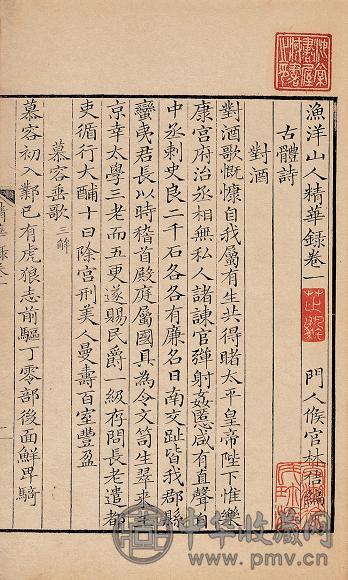 漁洋山人精華錄卷一 門人候官林佶編
古體詩
對酒
對酒歌慨慷自我屬有生共得睹太平皇帝陛下惟樂
康宫府治丞相無私人諸諫官彈射姦慝咸有直聲自
中丞刺史良二千石各各有廉名日南交趾皆我郡縣
蠻夷君長以時稽首殿庭屬國具為令文笥生翠來
京幸太學三老而五更遂賜民爵一級存問長老遣都
吏循行大酺十日除宫刑美人曼壽百室豐盈
慕容垂歌三解
慕容初入鄴已有虎狼志前驅丁零部後面鮮卑騎
中华收藏网
www.pmv.cn